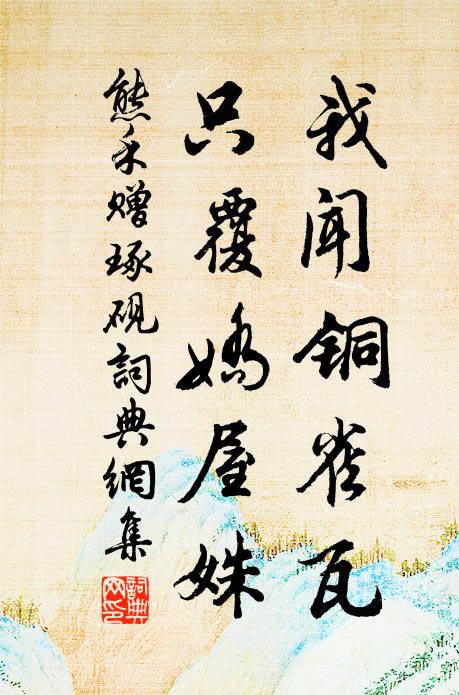 我闻铜雀瓦
只覆娇屋姝
熊禾赠琢砚詞典網集
詞典網印